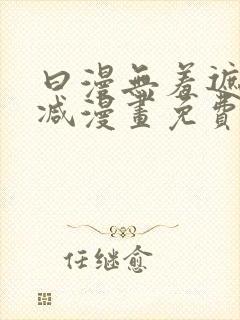 日漫無羞遮
减漫畫免費
任继愈